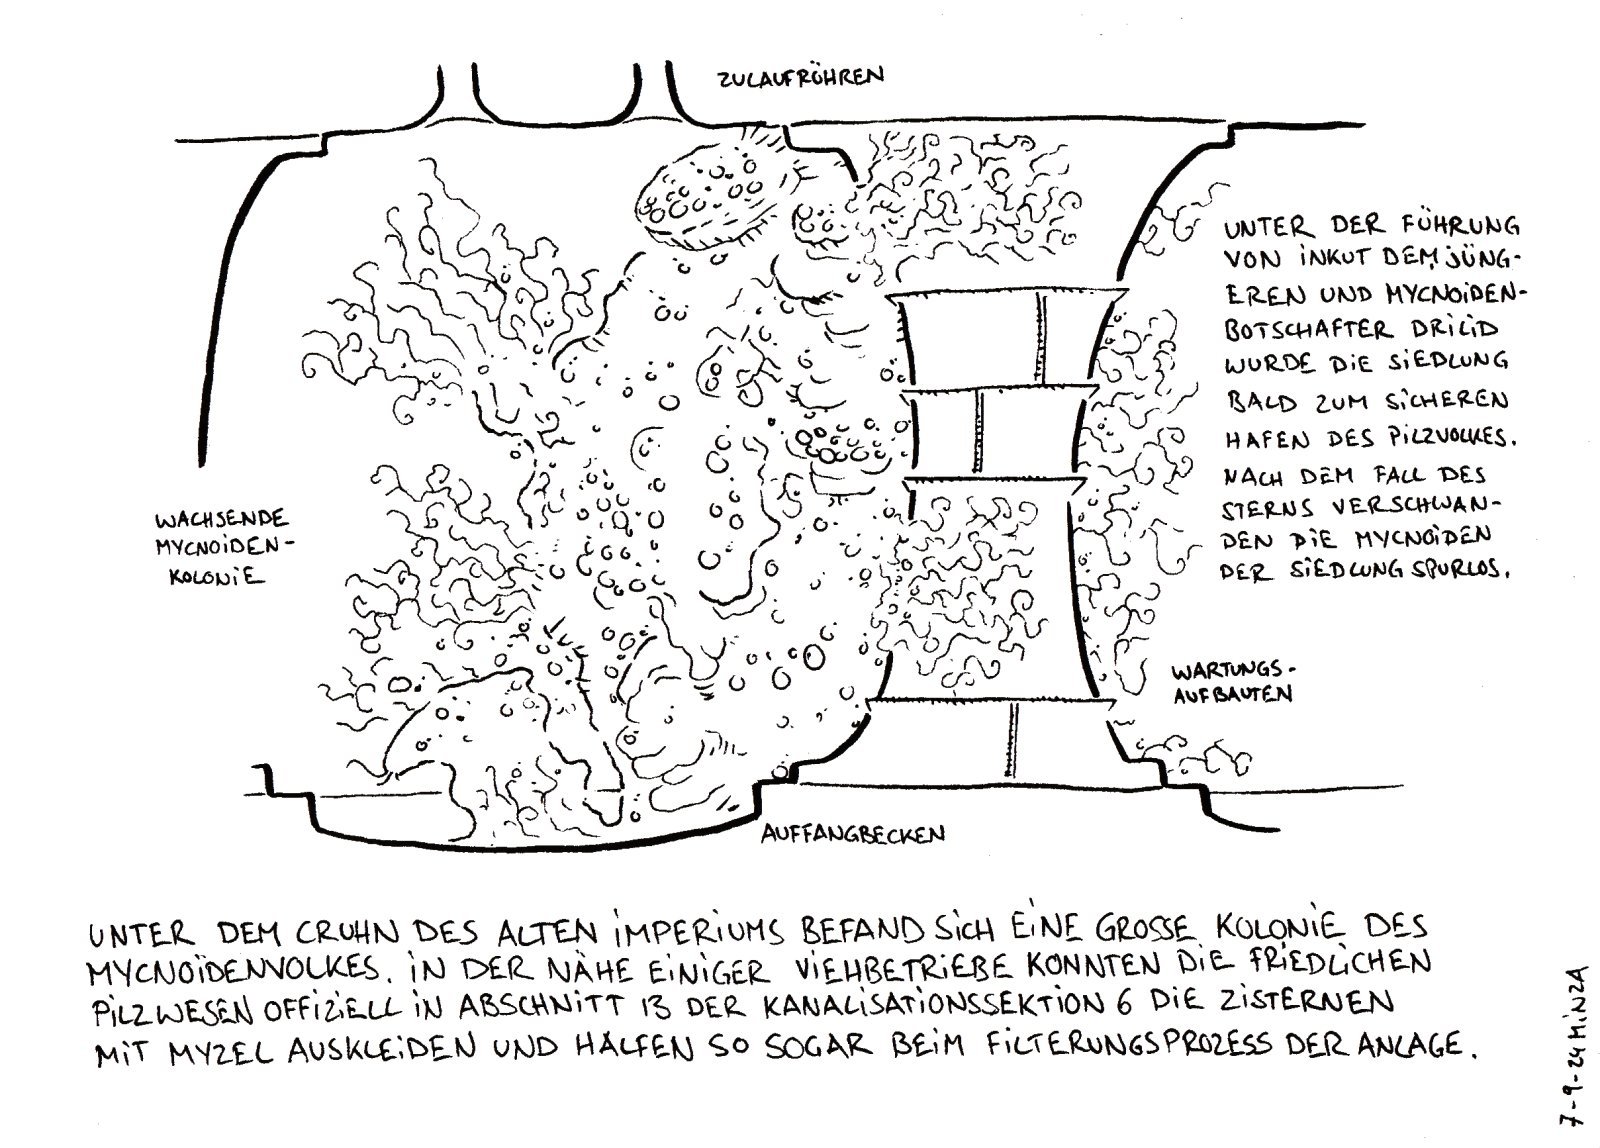 ZULAUFRÖHREN
UNTER DER FÜHRUNG
VON INKUT DEM JÜNG-
EREN UND MYCNOIDEN-
BOTSCHAFTER DRILID
WURDE DIE SIEDLUNG
BALD ZUM SICHEREN
HAFEN DES PILZVOLKES.
NACH DEM FALL DES
STERNS VERSCHWAN-
DEN DIE MYCNOIDEN
DER SIEDLUNG SPURLOS.
WACHSENDE
MYCNOIDEN-
KOLONIE
WARTUNGS-
AUFBAUTEN
AUFFANGBECKEN
UNTER DEM CRUHN DES ALTEN IMPERIUMS BEFAND SICH EINE GROSSE KOLONIE DES
MYCNOIDENVOLKES. IN DER NÄHE EINIGER VIEHBETRIEBE KONNTEN DIE FRIEDLICHEN
PILZWESEN OFFIZIELL IN ABSCHNITT 13 DER KANALISATIONSSEKTION 6 DIE ZISTERNEN
MIT MYZEL AUSKLEIDEN UND HALFEN SO SOGAR BEIM FILTERUNGSPROZESS DER ANLAGE.
7-9-24 MINZA